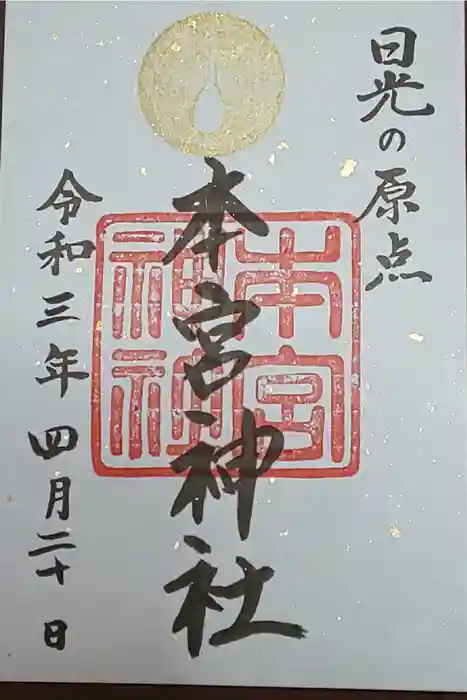 日光の原点
本宮神社
本宮
神社
令和三年四月二十日